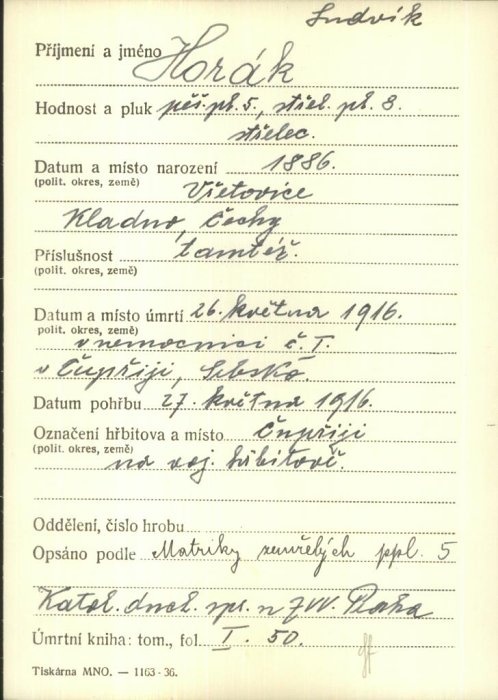 Ludvík
Příjmení a jméno Horák
Hodnost a pluk pěš. pl. 5., střel. pl. 8.
střelec.
Datum a místo narození 1886.
(polit. okres, země) Všetovice
Kladno, Čechy
Příslušnost tamtéž.
(polit. okres, země)
Datum a místo úmrtí 26. května 1916.
polit. okres, země)
v nemocnici č. I.
v Čupřiji, Srbsko.
Datum pohřbu 27. května 1916.
Označení hřbitova a místo Čupřiji
(polit. okres, země)
na voj. hřbitově.
Oddělení, číslo hrobu
Opsáno podle Matriky zemřelých ppl. 5
Katol. duch. spr. ZVV. Praha
Úmrtní kniha: tom., fol. I. 50.
Tiskárna MNO. — 1163-36.